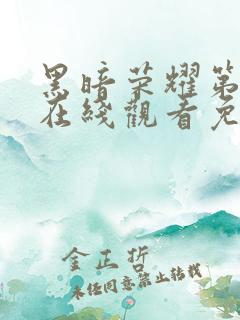 黑暗荣耀第
在线觀看免
金正哲
未经同意禁止转载